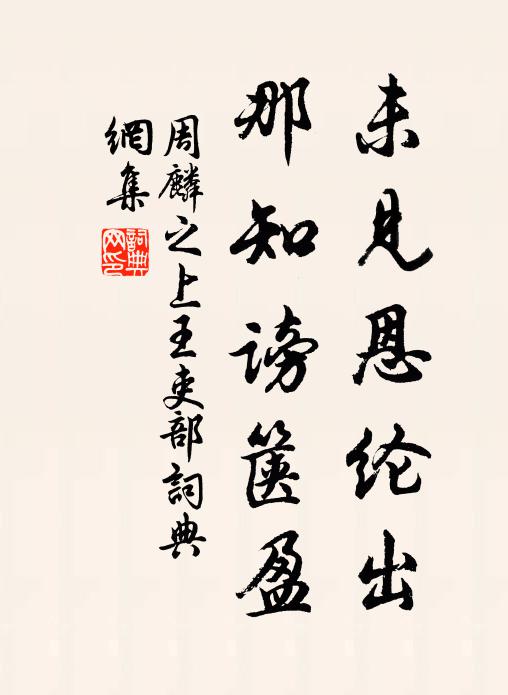 未見恩纶出
那知謗箧盈
周麟之上王吏部詞典
網集
詞典
网印